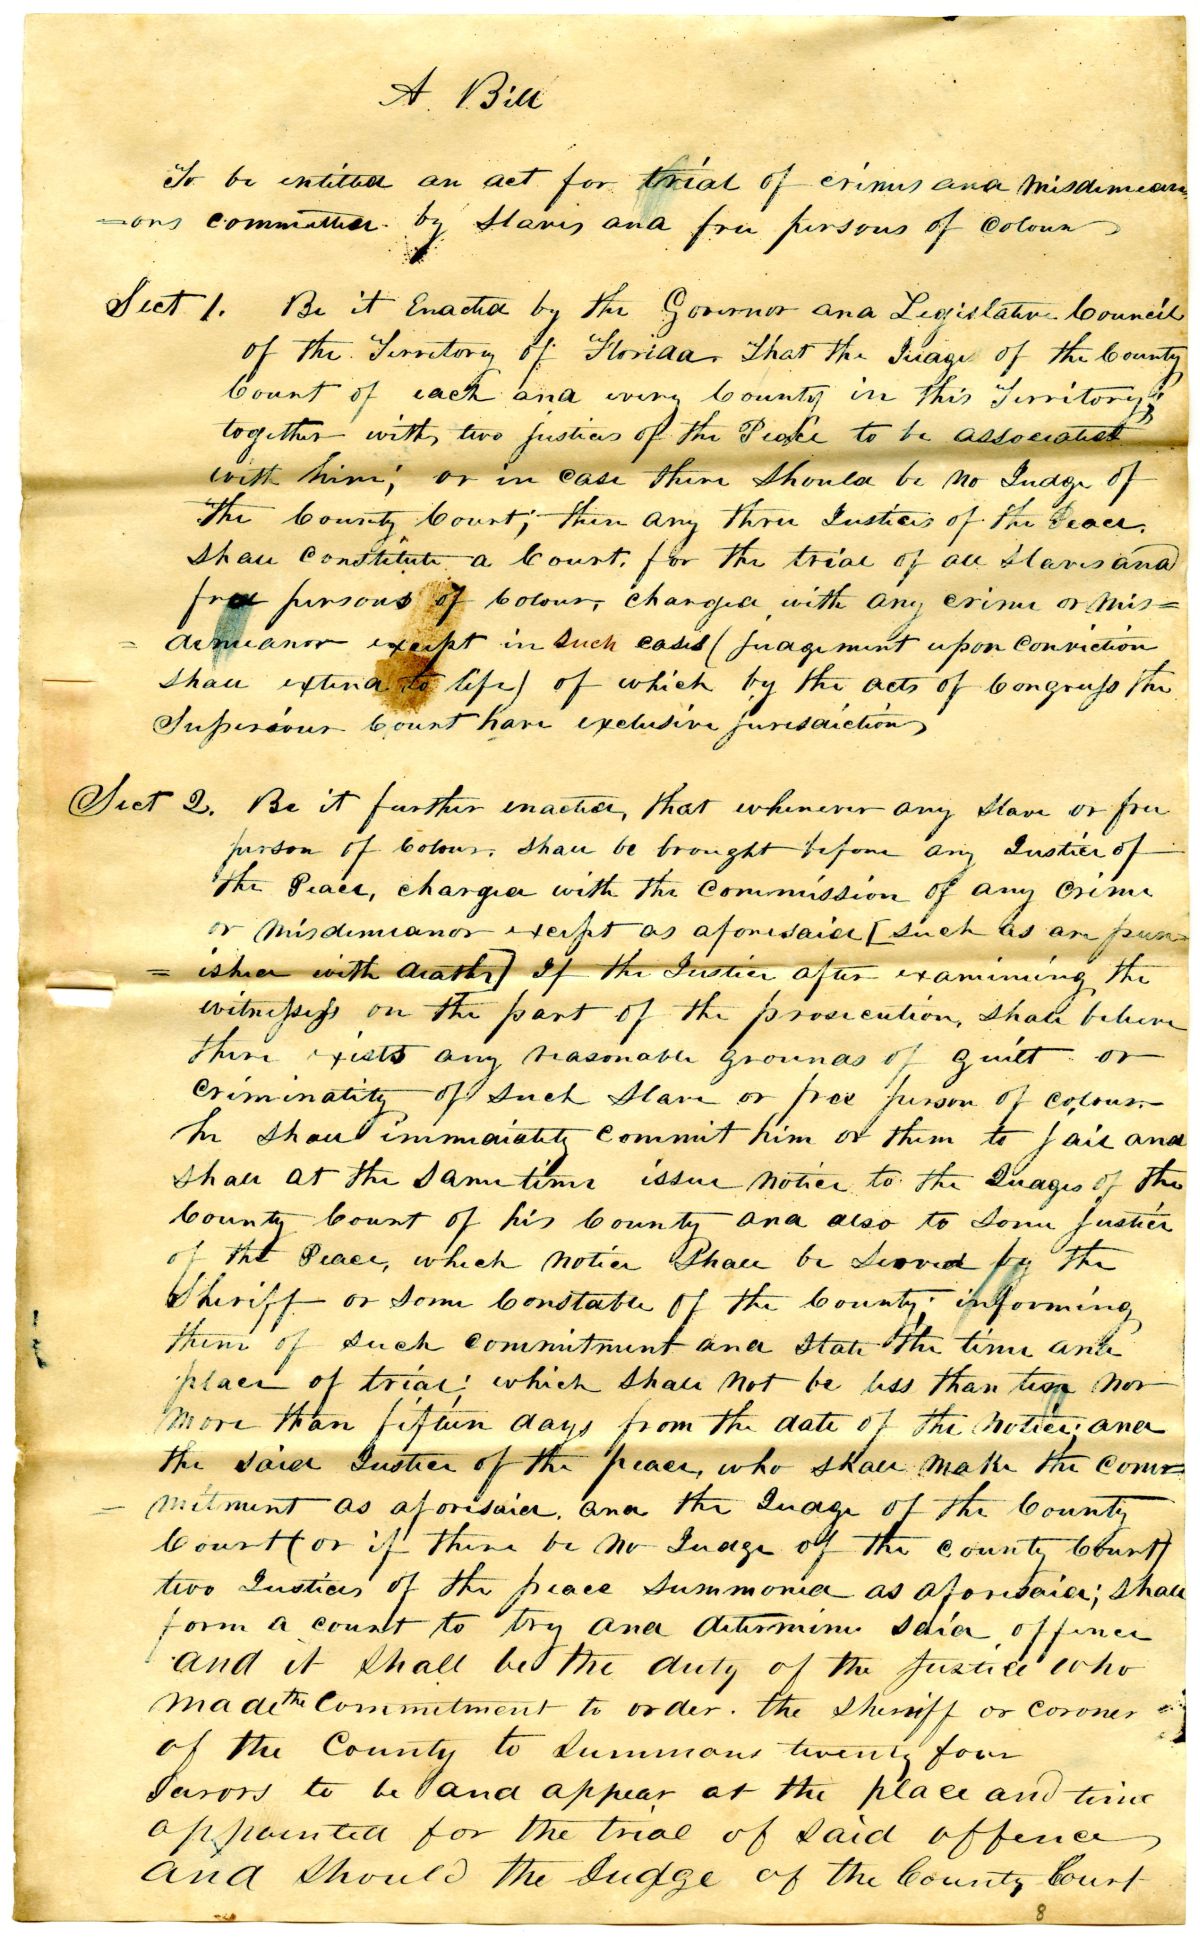 A Bill
To be entitled an act for trial of crimes and misdemean
=ors committed by Slaves and free persons of Colour
Sect 1. Be it Enacted by the Governor and Legislative Council
of the Territory of Florida, That the Judge of the County
Court of each and every County in this Territory;
together with two justices of the Peace to be associated
with him; or in case there should be no Judge of
the County Court; then any three Justices of the Peace.
shall constitute a Court, for the trial of all Slaves and
free persons of Colour, charged with any crime or mis=
=demeanor except in such cases (judgement upon conviction
shall extend to life) of which by the acts of Congress the
Superiour Court have exclusive jurisdiction,
Sect 2. Be it further enacted, that whenever any Slave or free
person of Colour. shall be brought before any Justice of
the Peace, charged with the commission of any Crime
or misdemeanor except as aforesaid [such as are pun=
=ished with death] If the Justice after examining the
witnesses on the part of the prosecution, shall believe
there exists any reasonable grounds of guilt or
criminality of such Slave or free person of colour.
he shall immediately commit him or them to jail and
shall at the same time issue notice to the Judges of the
County Court of his County and also to some justice
of the Peace, which notice shall be served by the
Sheriff or some Constable of the County; informing
them of such commitment and state the time and
place of trial; which shall not be less than ten nor
more than fifteen days from the date of the notice; and
the said Justice of the peace, who shall make the com=
=mitment as aforesaid. and the Judge of the County
Court (or if there be no Judge of the County Court)
two Justices of the peace summoned as aforesaid; shall
form a court to try and determine said offence
and it shall be the duty of the justice who
made the commitment to order. the sheriff or coroner
of the County to summons twenty four
Jurors to be and appear at the place and time
appointed for the trial of said offence,
and should the Judge of the County Court
8